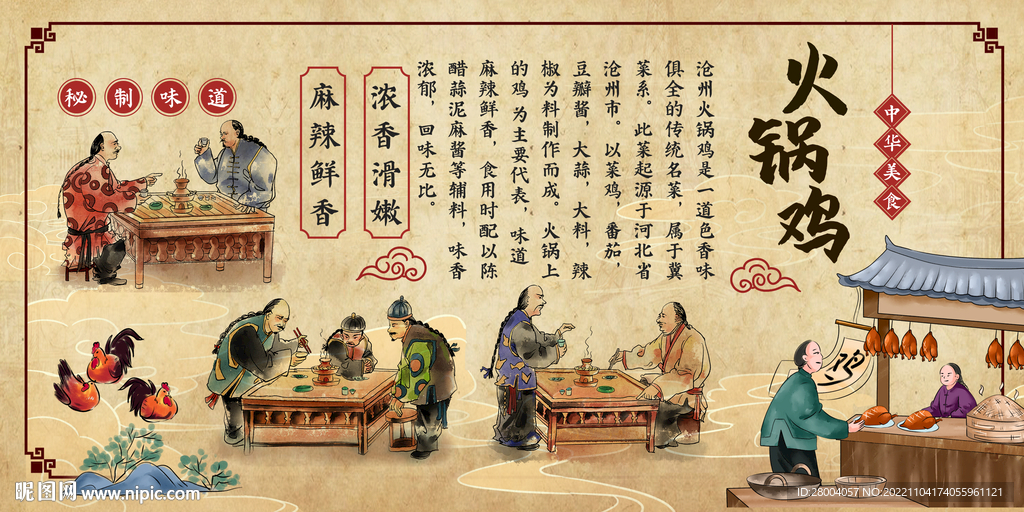 火锅鸡
中华美食
沧州火锅鸡是一道色香味
俱全的传统名菜，属于冀
菜系。此菜起源于河北省
沧州市。以菜鸡，番茄，
豆瓣酱，大蒜，大料，辣
椒为料制作而成。火锅上
的鸡为主要代表，味道
麻辣鲜香，食用时配以陈
醋蒜泥麻酱等辅料，味香
浓郁，回味无比。
浓香滑嫩
麻辣鲜香
秘制味道
鸡
昵图网 www.nipic.com
ID:28004057 NO.20221104174055961121